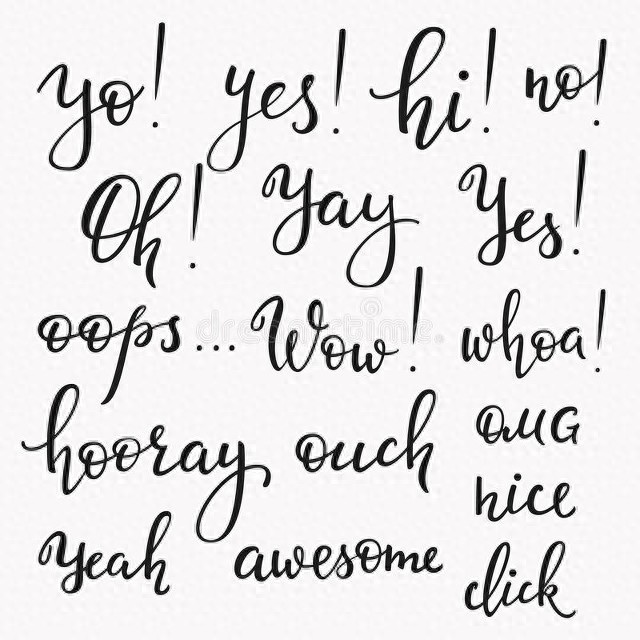 yo! yes! hi! no!
Oh! Yay Yes!
oops... Wow! whoa!
hooray ouch OMG
nice
yeah awesome click